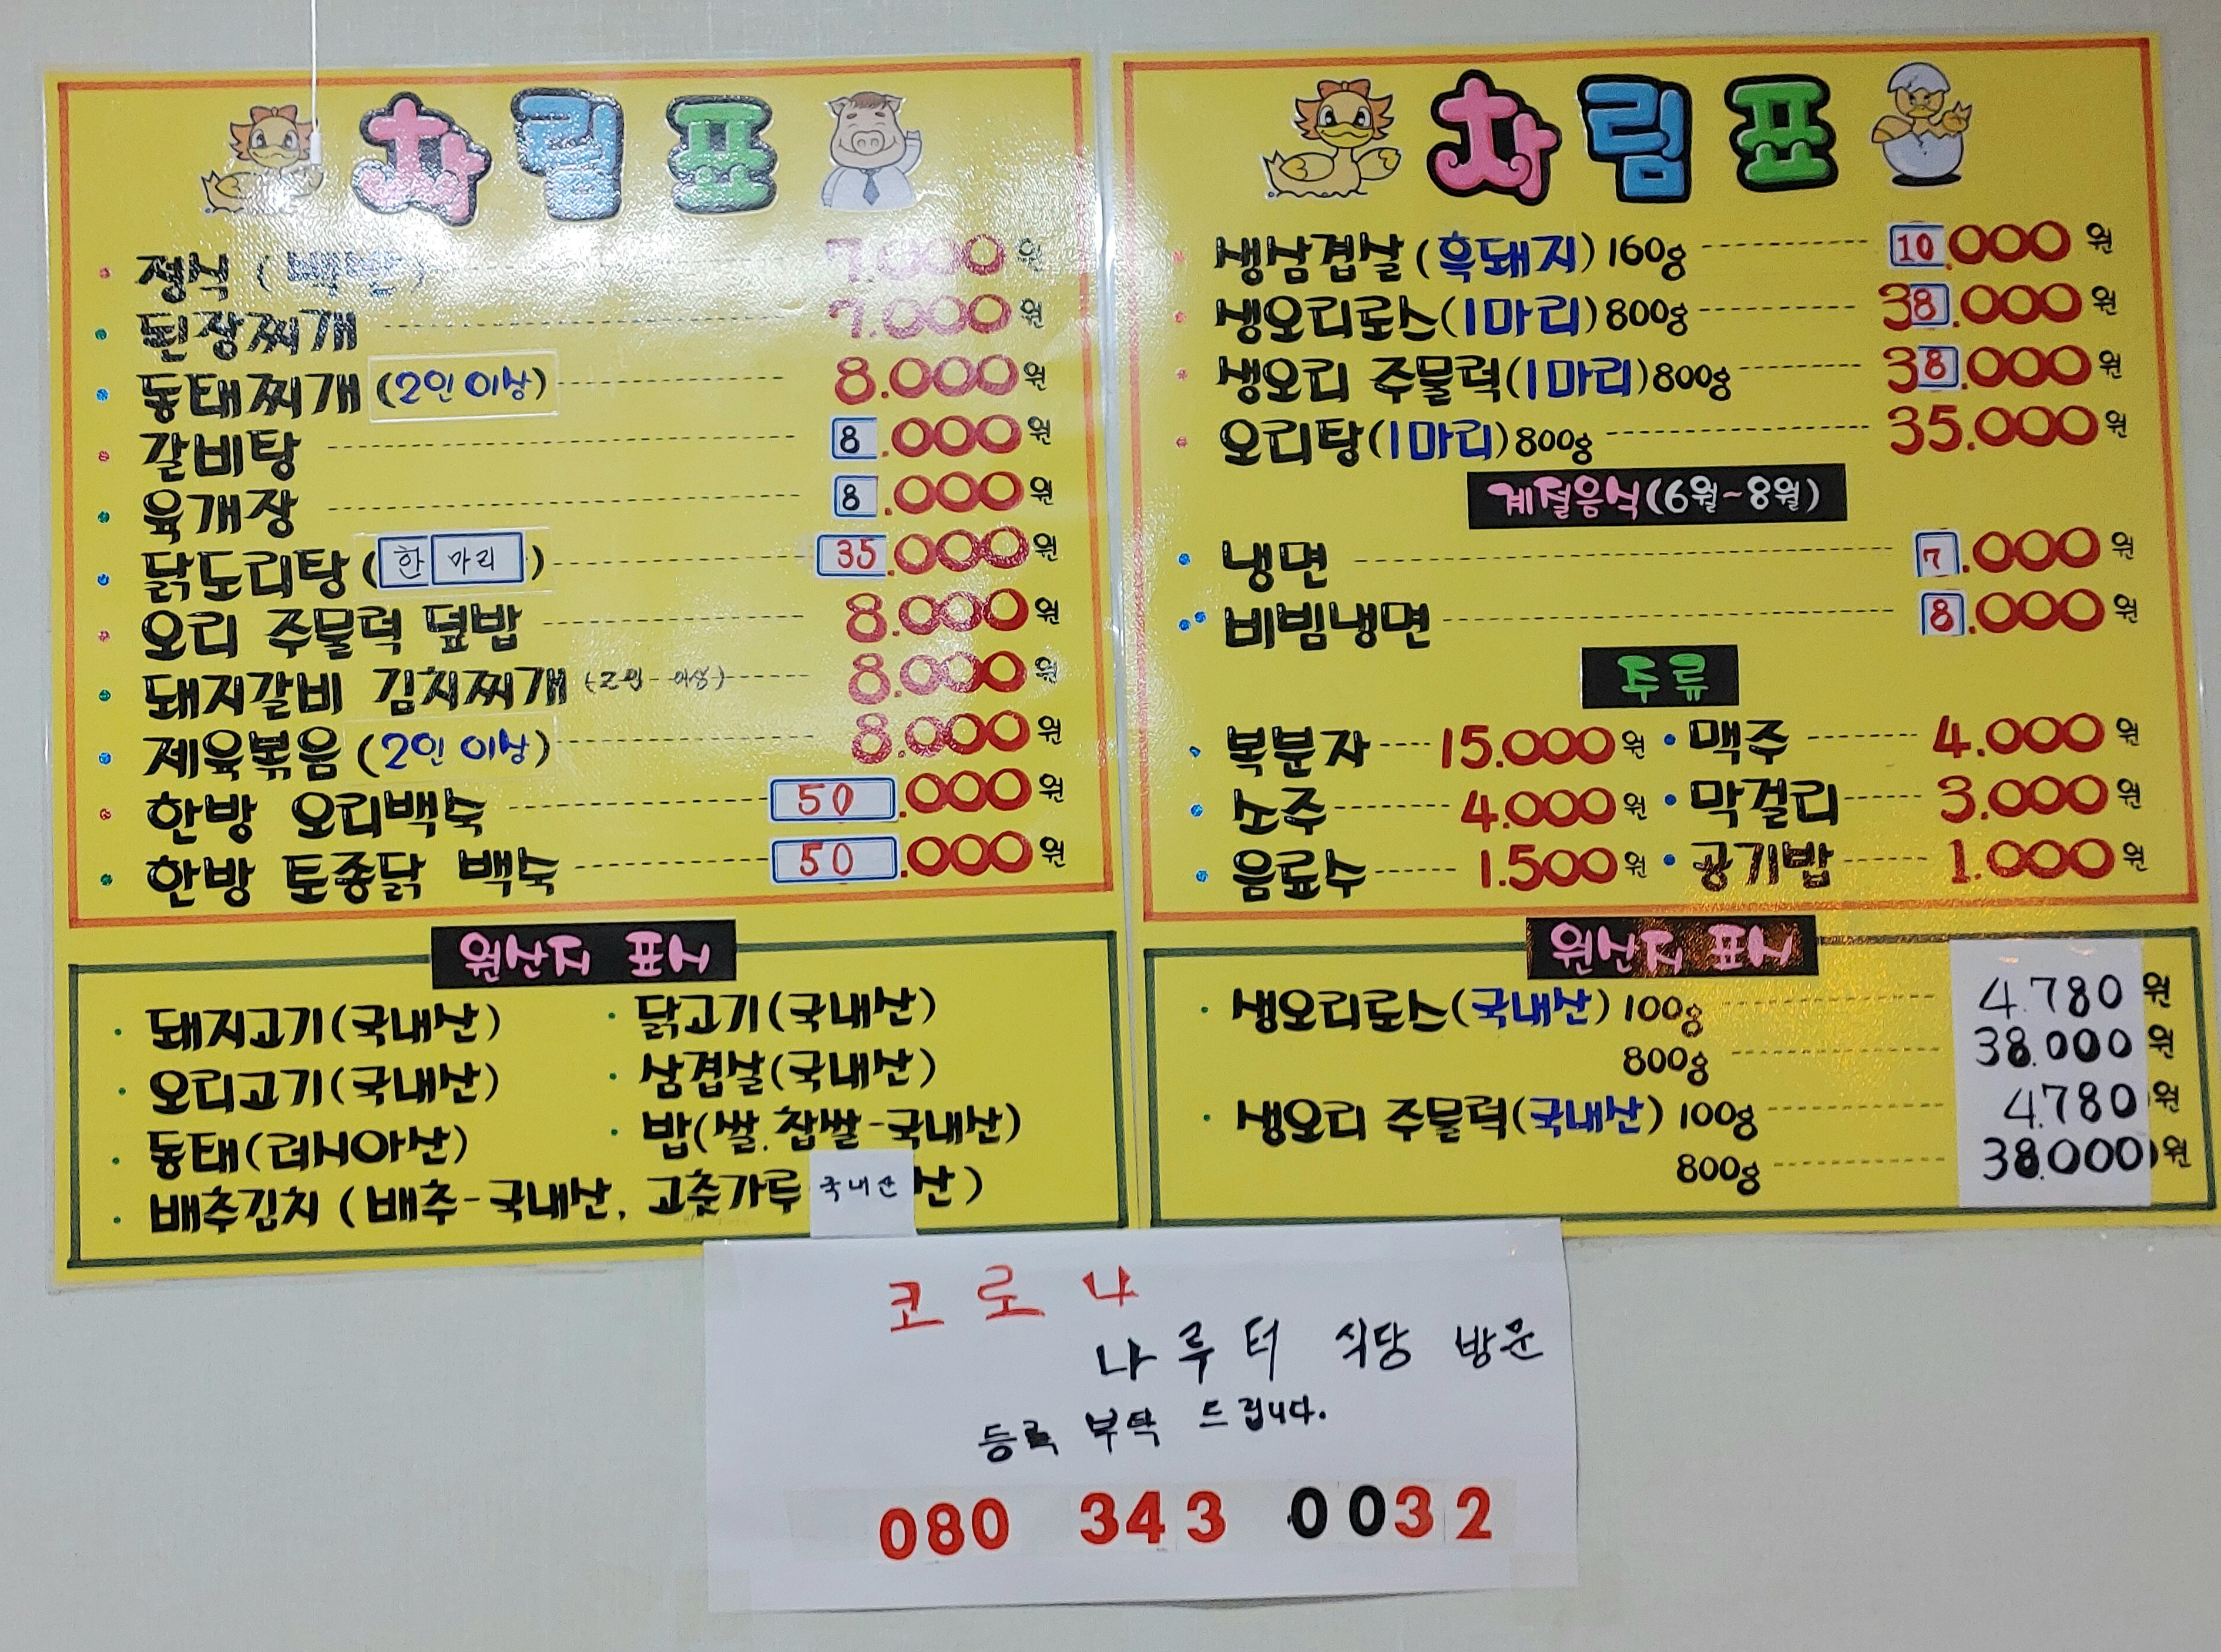 차림표
정식 (백반) 7.000원
된장찌개 7.000원
동태찌개 (2인 이상) 8.000원
갈비탕 8.000원
육개장 8.000원
닭도리탕 (한 마리) 35.000원
오리 주물럭 덮밥 8.000원
돼지갈비 김치찌개 (2인 이상) 8.000원
제육볶음 (2인 이상) 8.000원
한방 오리백숙 50.000원
한방 토종닭 백숙 50.000원
원산지 표시
돼지고기(국내산) 닭고기(국내산)
오리고기(국내산) 삼겹살(국내산)
동태(러시아산) 밥(쌀.찹쌀-국내산)
배추김치 (배추-국내산, 고춧가루 국내산 산)
차림표
생삼겹살(흑돼지) 160g 10.000원
생오리로스(1마리) 800g 38.000원
생오리 주물럭(1마리) 800g 38.000원
오리탕(1마리) 800g 35.000원
계절음식(6월~8월)
냉면 7.000원
비빔냉면 8.000원
주류
복분자 15.000원 맥주 4.000원
소주 4.000원 막걸리 3.000원
음료수 1.500원 공기밥 1.000원
원산지 표시
생오리로스(국내산) 100g 4.780원
800g 38.000원
생오리 주물럭(국내산) 100g 4.780원
800g 38.000원
코로나
나루터 식당 방문
등록 부탁 드립니다.
080 343 0032